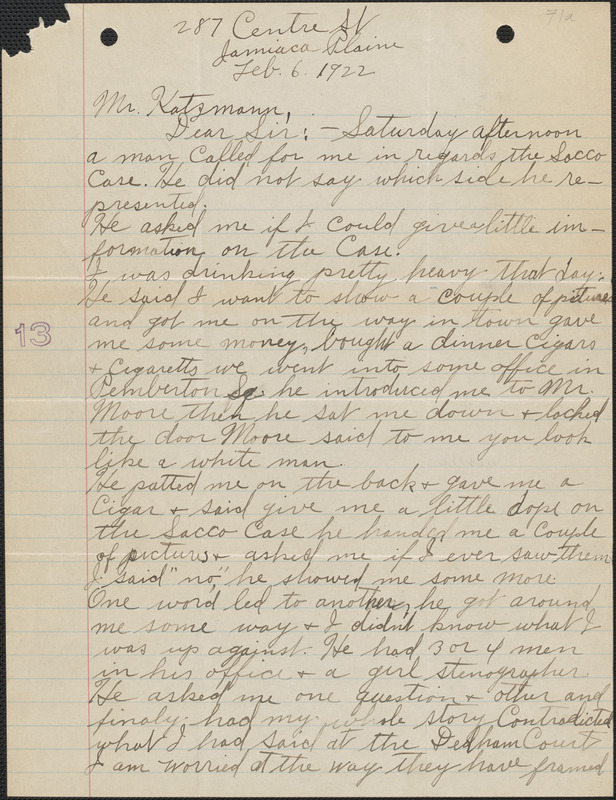 71a
287 Centre St
Jamiaca Plaine
Feb. 6. 1922
Mr. Katzmann,
Dear Sir: – Saturday afternoon
a man called for me in regards the Sacco
Case. He did not say which side he re-
presented.
He asked me if I could give a little im-
formation on the Case.
I was drinking pretty heavy that day.
He said I want to show a couple of pictures
and got me on the way in town gave
me some money, bought a dinner Cigars
13
& Cigaretts we went into some office in
Pemberton Sq. he introduced me to Mr.
Moore then he sat me down & locked
the door Moore said to me you look
like a white man.
He patted me on the back & gave me a
Cigar & said give me a little dope on
the Sacco Case he handed me a Couple
of pictures & asked me if I ever saw them
I said "no," he showed me some more
One word led to another, he got around
me some way & I didn't know what I
was up against. He had 3 or 4 men
in his office & a girl stenographer.
He asked me one question & other and
finaly had my whole story Contradicted
what I had said at the Dedham Court
I am worried at the way they have framed